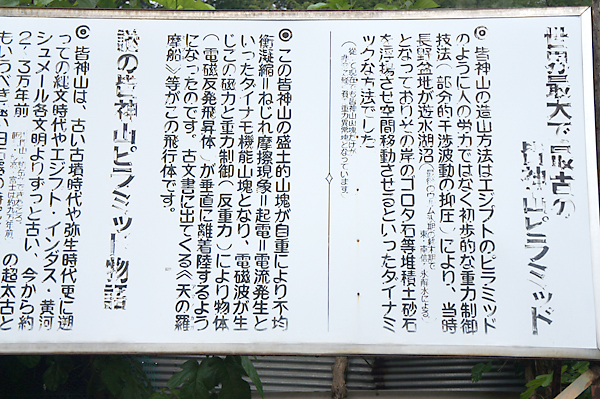 世界最大で最古の
皆神山ピラミッド
◎ 皆神山の造山方法はエジプトのピラミッド
のように人の労力ではなく初歩的な重力制御
技法(部分的干渉波動の抑圧)により、当時
長野盆地が遊水湖沼
となっておりその岸のゴロタ石等堆積土砂石
を浮揚させ空間移動させるといったダイナミ
ックな方法でした
◎ この皆神山の盛土的山塊が自重により不均
衡凝縮=ねじれ摩擦現象=起電=電流発生と
いったダイナモ機能山塊となり、電磁波が生
じこの磁力と重力制御(反重力)により物体
(電磁反発飛昇体)が垂直に離着陸するよう
になったのです。古文書に出てくる≪天の羅
摩船≫等がこの飛行体です。
謎の皆神山ピラミッド物語
◎ 皆神山は、古い古墳時代や弥生時代更に遡
っての縄文時代やエジプト・インダス・黄河
シュメール各文明よりずっと古い、今から約
2・3万年前
の超太古と